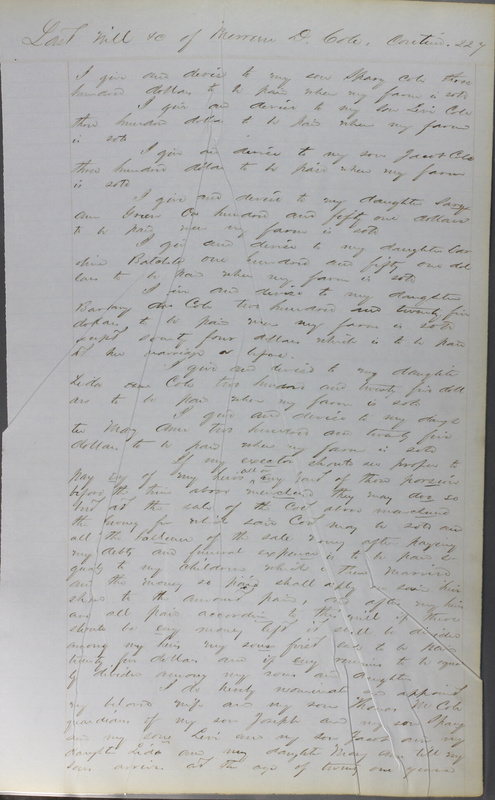 Last Will &c of D. Cole, Contin. 227
I give and devise to my son Spary Cole three
hundred dollars to be paid when my farm is sold
I give and devise to my son Levi Cole
three hundred dollars to be paid when my farm
is sold
I give and devise to my son Jacob Cole
three hundred dollars to be paid when my farm
is sold
I give and devise to my daughter
ann one hundred and fifty one dollars
to be paid when my farm is sold
I give and devise to my daughter
one hundred and fifty one dol
lars to be paid when my farm is sold
I give and devise to my daughter
Cole two hundred and twenty five
dollars to be paid when my farm is sold
except seventy four dollars which is to be paid
to her marriage or before.
I give and devise to my daughter
Lida Cole two hundred and twenty five doll
ars to be paid when my farm is sold
I give and devise to my daugh
ter Mary Ann two hundred and twenty five
dollars to be paid when my farm is sold
If my executor should see proper to
pay any of my heirs all or any part of their
before the time above they may do so
and at the sale of the above
the money for which said may be sold and
all the ballence of the sale money after paying
my debts and funeral expences is to be paid e
qualy to my children which is then married
and the money so paid shall apply on said heirs
share to the amount paid, and after my heirs
are all paid according to this will if there
should be any money left it shall be divided
among my heirs my sons first to be paid
twenty five dollars and if any remains to be equa
ly divided among my sons and daughters
I do hereby nominate and appoint
my beloved wife and my son Thomas Cole
guardians of my son Joseph and my son Spary
and my son Levi and my son Jacob and my
daughter Lida and my daughter Mary Ann till my
sons arrive at the age of twenty one years